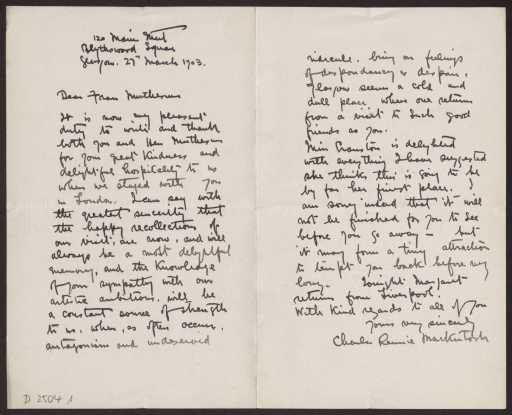 120 Mains Street
Blythswood Square
Glasgow. 27th March 1903.
Dear Frau Muthesius
It is now my pleasant
duty to write and thank
both you and Herr Muthesius
for your great Kindness and
delightful hospitality to us
when we stayed with you
in London. I can say with
the greatest sincerity that
the happy recollection of
our visit, are now, and will
always be a most delightful
memory, and the Knowledge
of your sympathy with our
artistic ambitions, will be
a constant source of strength
to us, when, as often occurs,
antagonism and undeserved
ridicule, bring on feelings
of despondency & despair.
Glasgow seems a cold and
dull place when one returns
from a visit to such good
friends as you.
Miss Cranston is delighted
with everything I have suggested
she thinks this is going to be
by far her finest place. I
am sorry indeed that it will
not be finished for you to see
before you go away — but
it may form a tiny attraction
to tempt you back before very
long. Tonight Margaret
returns from Liverpool.
With Kind regards to all of you
Yours very sincerely
Charles Rennie Mackintosh
D 2504 1